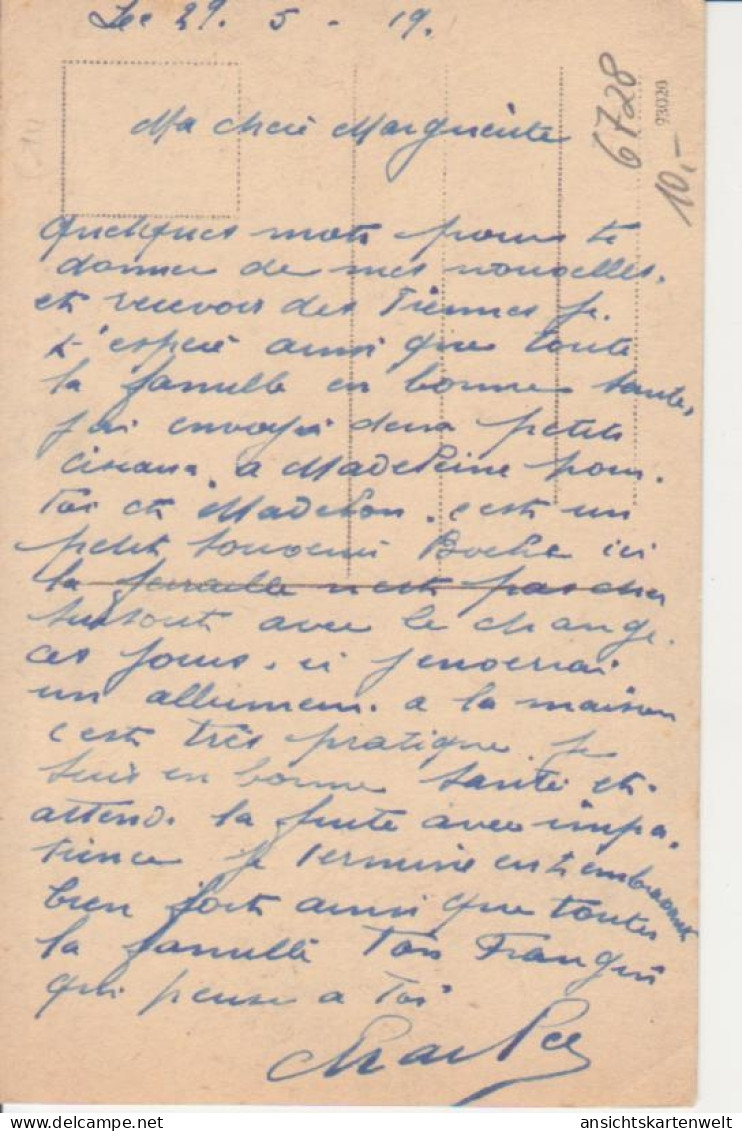 Le 29. 5 - 19.
6728
93020
10.-
Ma chere Marguerite
quelques mots pour te
donner de mes nouvelles.
et recevoir des Tiennes je
t'espere ainsi que toute
la famille en bonne sante,
j'ai envoyé deux petits
ciseaux. a Madeleine pour.
Toi et Madelon. c'est un
petit souvenir Boche ici
la ferraille n'est pas cher
surtout avec le change.
ces jours. ci j'enverrai
un allumeur. a la maison
c'est très pratique je
suis en bonne santé et
attend. la suite avec impa.
tience je termine en t'embrassant
bien fort ainsi que toutes
la famille Ton Frangin
qui pense a Toi
Charles
ansichtskartenwelt